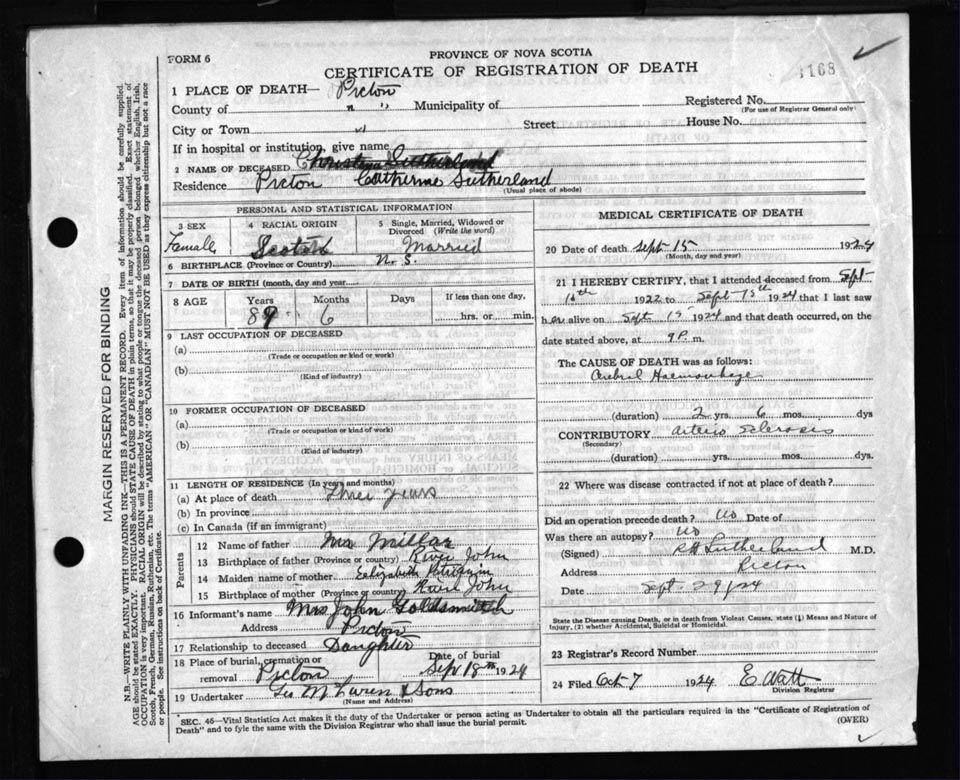 FORM 6
PROVINCE OF NOVA SCOTIA
CERTIFICATE OF REGISTRATION OF DEATH
1168
1 PLACE OF DEATH— Pictou
County of " " Municipality of
Registered No.
(For use of Registrar General only)
City or Town " Street House No.
If in hospital or institution, give name
2 NAME OF DECEASED Christena Sutherland
Catherine Sutherland
Residence Pictou
(Usual place of abode)
PERSONAL AND STATISTICAL INFORMATION
3 SEX Female
4 RACIAL ORIGIN Scotch
5 Single, Married, Widowed or Divorced (Write the word) Married
6 BIRTHPLACE (Province or Country) N. S.
7 DATE OF BIRTH (month, day and year)
8 AGE Years 89 Months 6 Days If less than one day, hrs. or min.
9 LAST OCCUPATION OF DECEASED
(a)
(Trade or occupation or kind or work)
(b)
(Kind of industry)
10 FORMER OCCUPATION OF DECEASED
(a)
(Trade or occupation or kind of work)
(b)
(Kind of industry)
11 LENGTH OF RESIDENCE (In years and months)
(a) At place of death Three years
(b) In province
(c) In Canada (if an immigrant)
Parents
12 Name of father Millar
13 Birthplace of father (Province or country) River John
14 Maiden name of mother Elizabeth
15 Birthplace of mother (Province or country) River John
16 Informant's name Mrs John Goldsmith
Address Pictou
17 Relationship to deceased Daughter
18 Place of burial, cremation or removal Pictou Date of burial Sep 18th 1924
19 Undertaker & Sons
(Name and Address)
MEDICAL CERTIFICATE OF DEATH
20 Date of death Sept 15 1924
(Month, day and year)
21 I HEREBY CERTIFY, that I attended deceased from Sept
1922 to Sept 15 1924 that I last saw
her alive on Sept 15 1924 and that death occurred, on the
date stated above, at 9 P. m.
The CAUSE OF DEATH was as follows:
Cerebral Haemorrhage
(duration) 2 yrs. 6 mos. dys
CONTRIBUTORY Arterio Sclerosis
(Secondary)
(duration) yrs. mos. dys.
22 Where was disease contracted if not at place of death?
Did an operation precede death? No Date of
Was there an autopsy? No
(Signed) Sutherland M.D.
Address Pictou
Date Sept. 29/24
State the Disease causing Death, or in death from Violent Causes, state (1) Means and Nature of
Injury, (2) whether Accidental, Suicidal or Homicidal.
23 Registrar's Record Number
24 Filed Oct 7 1924 E Watt
Division Registrar
SEC. 46—Vital Statistics Act makes it the duty of the Undertaker or person acting as Undertaker to obtain all the particulars required in the "Certificate of Registration of
Death" and to fyle the same with the Division Registrar who shall issue the burial permit.
(OVER)
MARGIN RESERVED FOR BINDING
N.B.—WRITE PLAINLY WITH UNFADING INK—THIS IS A PERMANENT RECORD. Every item of information should be carefully supplied.
AGE should be stated EXACTLY. PHYSICIANS should STATE CAUSE OF DEATH in plain terms, so that it may be properly classified. Exact statement of
OCCUPATION is very important. RACIAL ORIGIN will be described by stating to what people or tongue the deceased person belonged whether English, Irish,
Scotch, French, German, Russian, Ruthenian, etc. The terms "AMERICAN" OR "CANADIAN" MUST NOT BE USED as they express citizenship but not a race
or people. See instructions on back of Certificate.